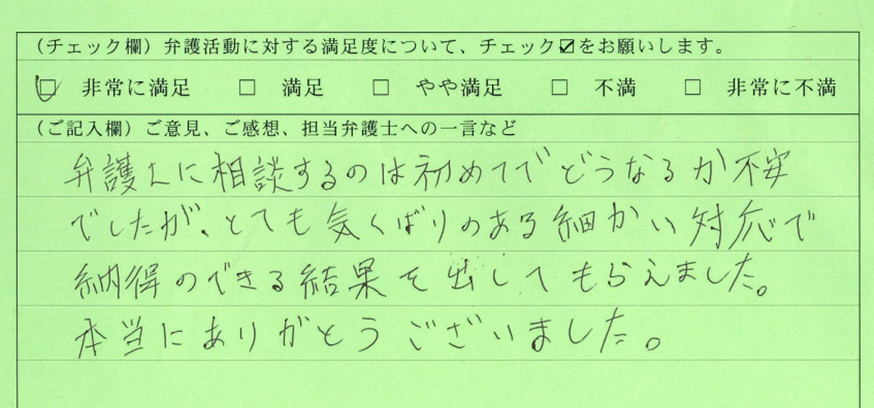 （チェック欄）弁護活動に対する満足度について、チェック☑をお願いします。
☑ 非常に満足 □ 満足 □ やや満足 □ 不満 □ 非常に不満
（ご記入欄）ご意見、ご感想、担当弁護士への一言など
弁護士に相談するのは初めてでどうなるか不安
でしたが、とても気くばりのある細かい対応で
納得のできる結果を出してもらえました。
本当にありがとうございました。